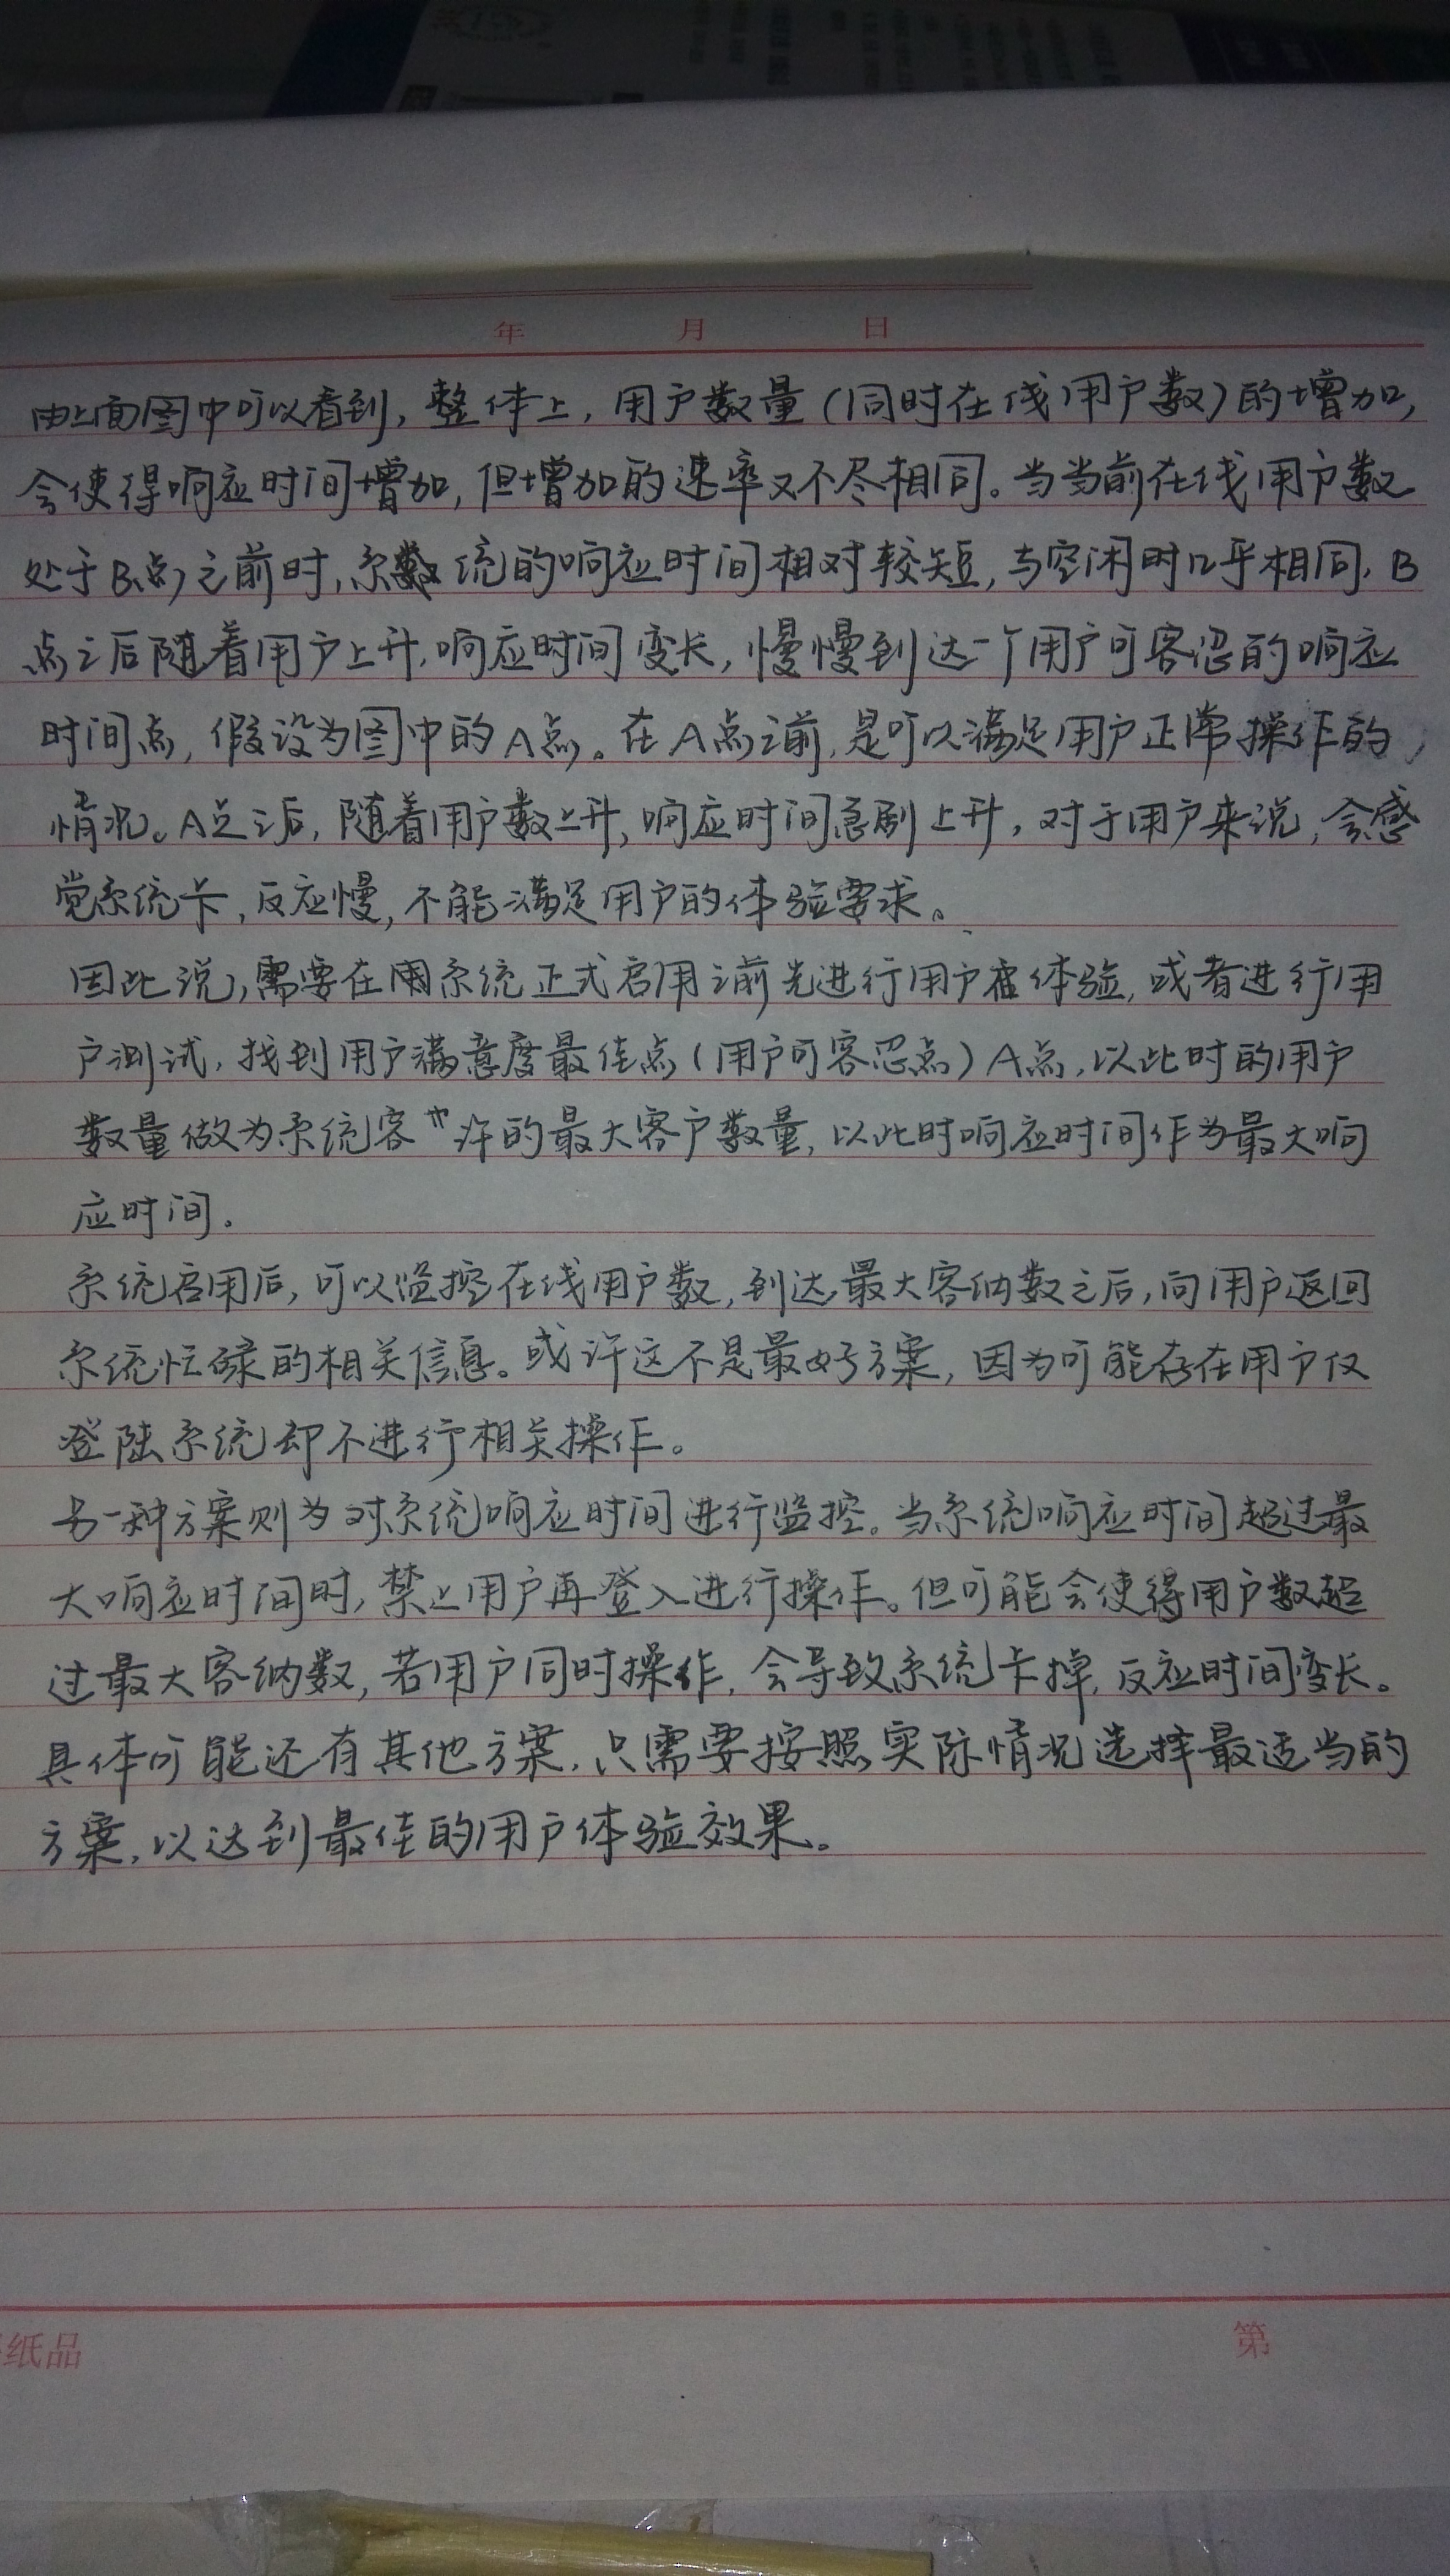 年 月 日
由上面图中可以看到，整体上，用户数量（同时在线用户数）的增加，
会使得响应时间增加，但增加的速率又不尽相同。当当前在线用户数
处于B点之前时，系统的响应时间相对较短，与空闲时几乎相同，B
点之后随着用户上升，响应时间变长，慢慢到达一个用户可容忍的响应
时间点，假设为图中的A点。在A点之前，是可以满足用户正常操作的，
情况。A点之后，随着用户数上升，响应时间急剧上升，对于用户来说，会感
觉系统卡，反应慢，不能满足用户的体验要求。
因此说，需要在系统正式启用之前先进行用户体验，或者进行用
户测试，找到用户满意度最佳点（用户可容忍点）A点，以此时的用户
数量做为系统容许的最大客户数量，以此时响应时间作为最大响
应时间。
系统启用后，可以监控在线用户数，到达最大容纳数之后，向用户返回
系统忙碌的相关信息。或许这不是最好方案，因为可能存在用户仅
登陆系统却不进行相关操作。
另一种方案则为对系统响应时间进行监控。当系统响应时间超过最
大响应时间时，禁止用户再登入进行操作。但可能会使得用户数超
过最大容纳数，若用户同时操作，会导致系统卡掉，反应时间变长。
具体可能还有其他方案，只需要按照实际情况选择最适当的
方案，以达到最佳的用户体验效果。
纸品 第